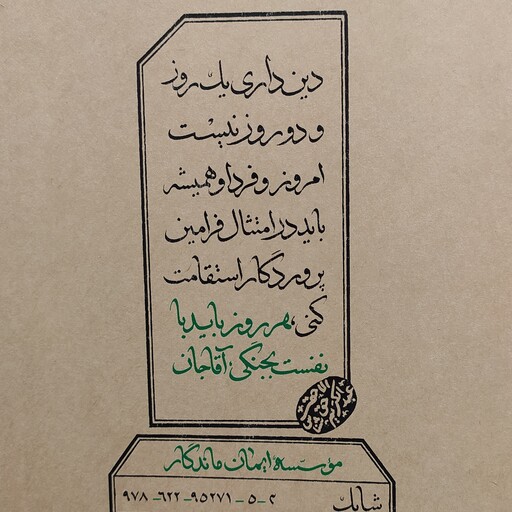 دین‌داری یک روز
و دو روز نیست
امروز و فردا و همیشه
باید در امتثال فرامین
پروردگار استقامت
کنی، هر روز باید با
نفست بجنگی؛ آقاجان
مؤسسه ایمان ماندگار
شابک
۹۷۸-۶۲۲-۹۵۲۷۱-۵-۲